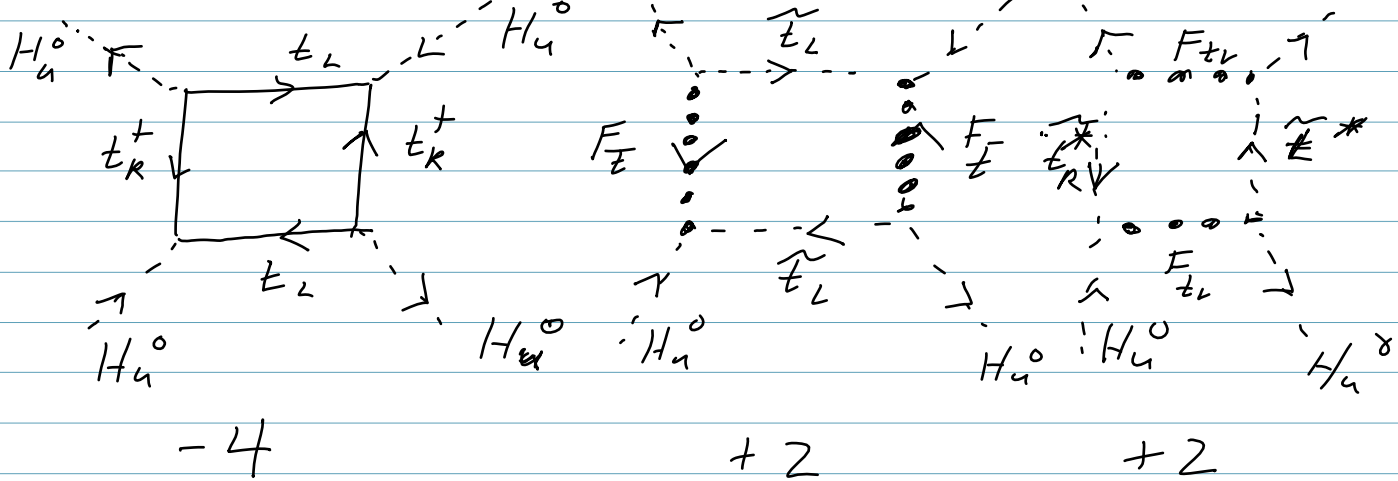 H_u^0 t_L H_u^0 \tilde{t}_L F_{t_L}
t_R^† t_R^† F_{\bar{t}} F_{\bar{t}} \tilde{t}_R^* \tilde{t}^*
t_L \tilde{t}_L F_{t_L}
H_u^0 H_u^0 H_u^0 H_u^0 H_u^0 H_u^0
-4 +2 +2